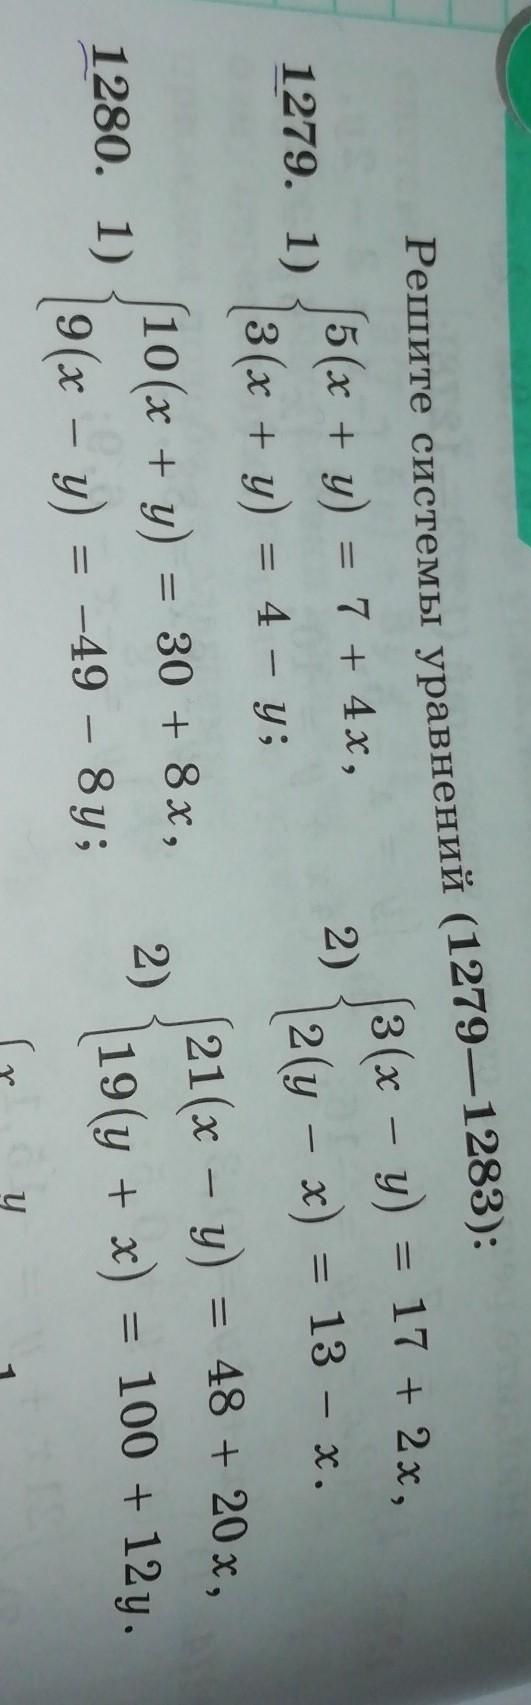 Решите системы уравнений (1279—1283):
1279. 1) {5(x + y) = 7 + 4x,
3(x + y) = 4 − y;
2) {3(x − y) = 17 + 2x,
2(y − x) = 13 − x.
1280. 1) {10(x + y) = 30 + 8x,
9(x − y) = −49 − 8y;
2) {21(x − y) = 48 + 20x,
19(y + x) = 100 + 12y.